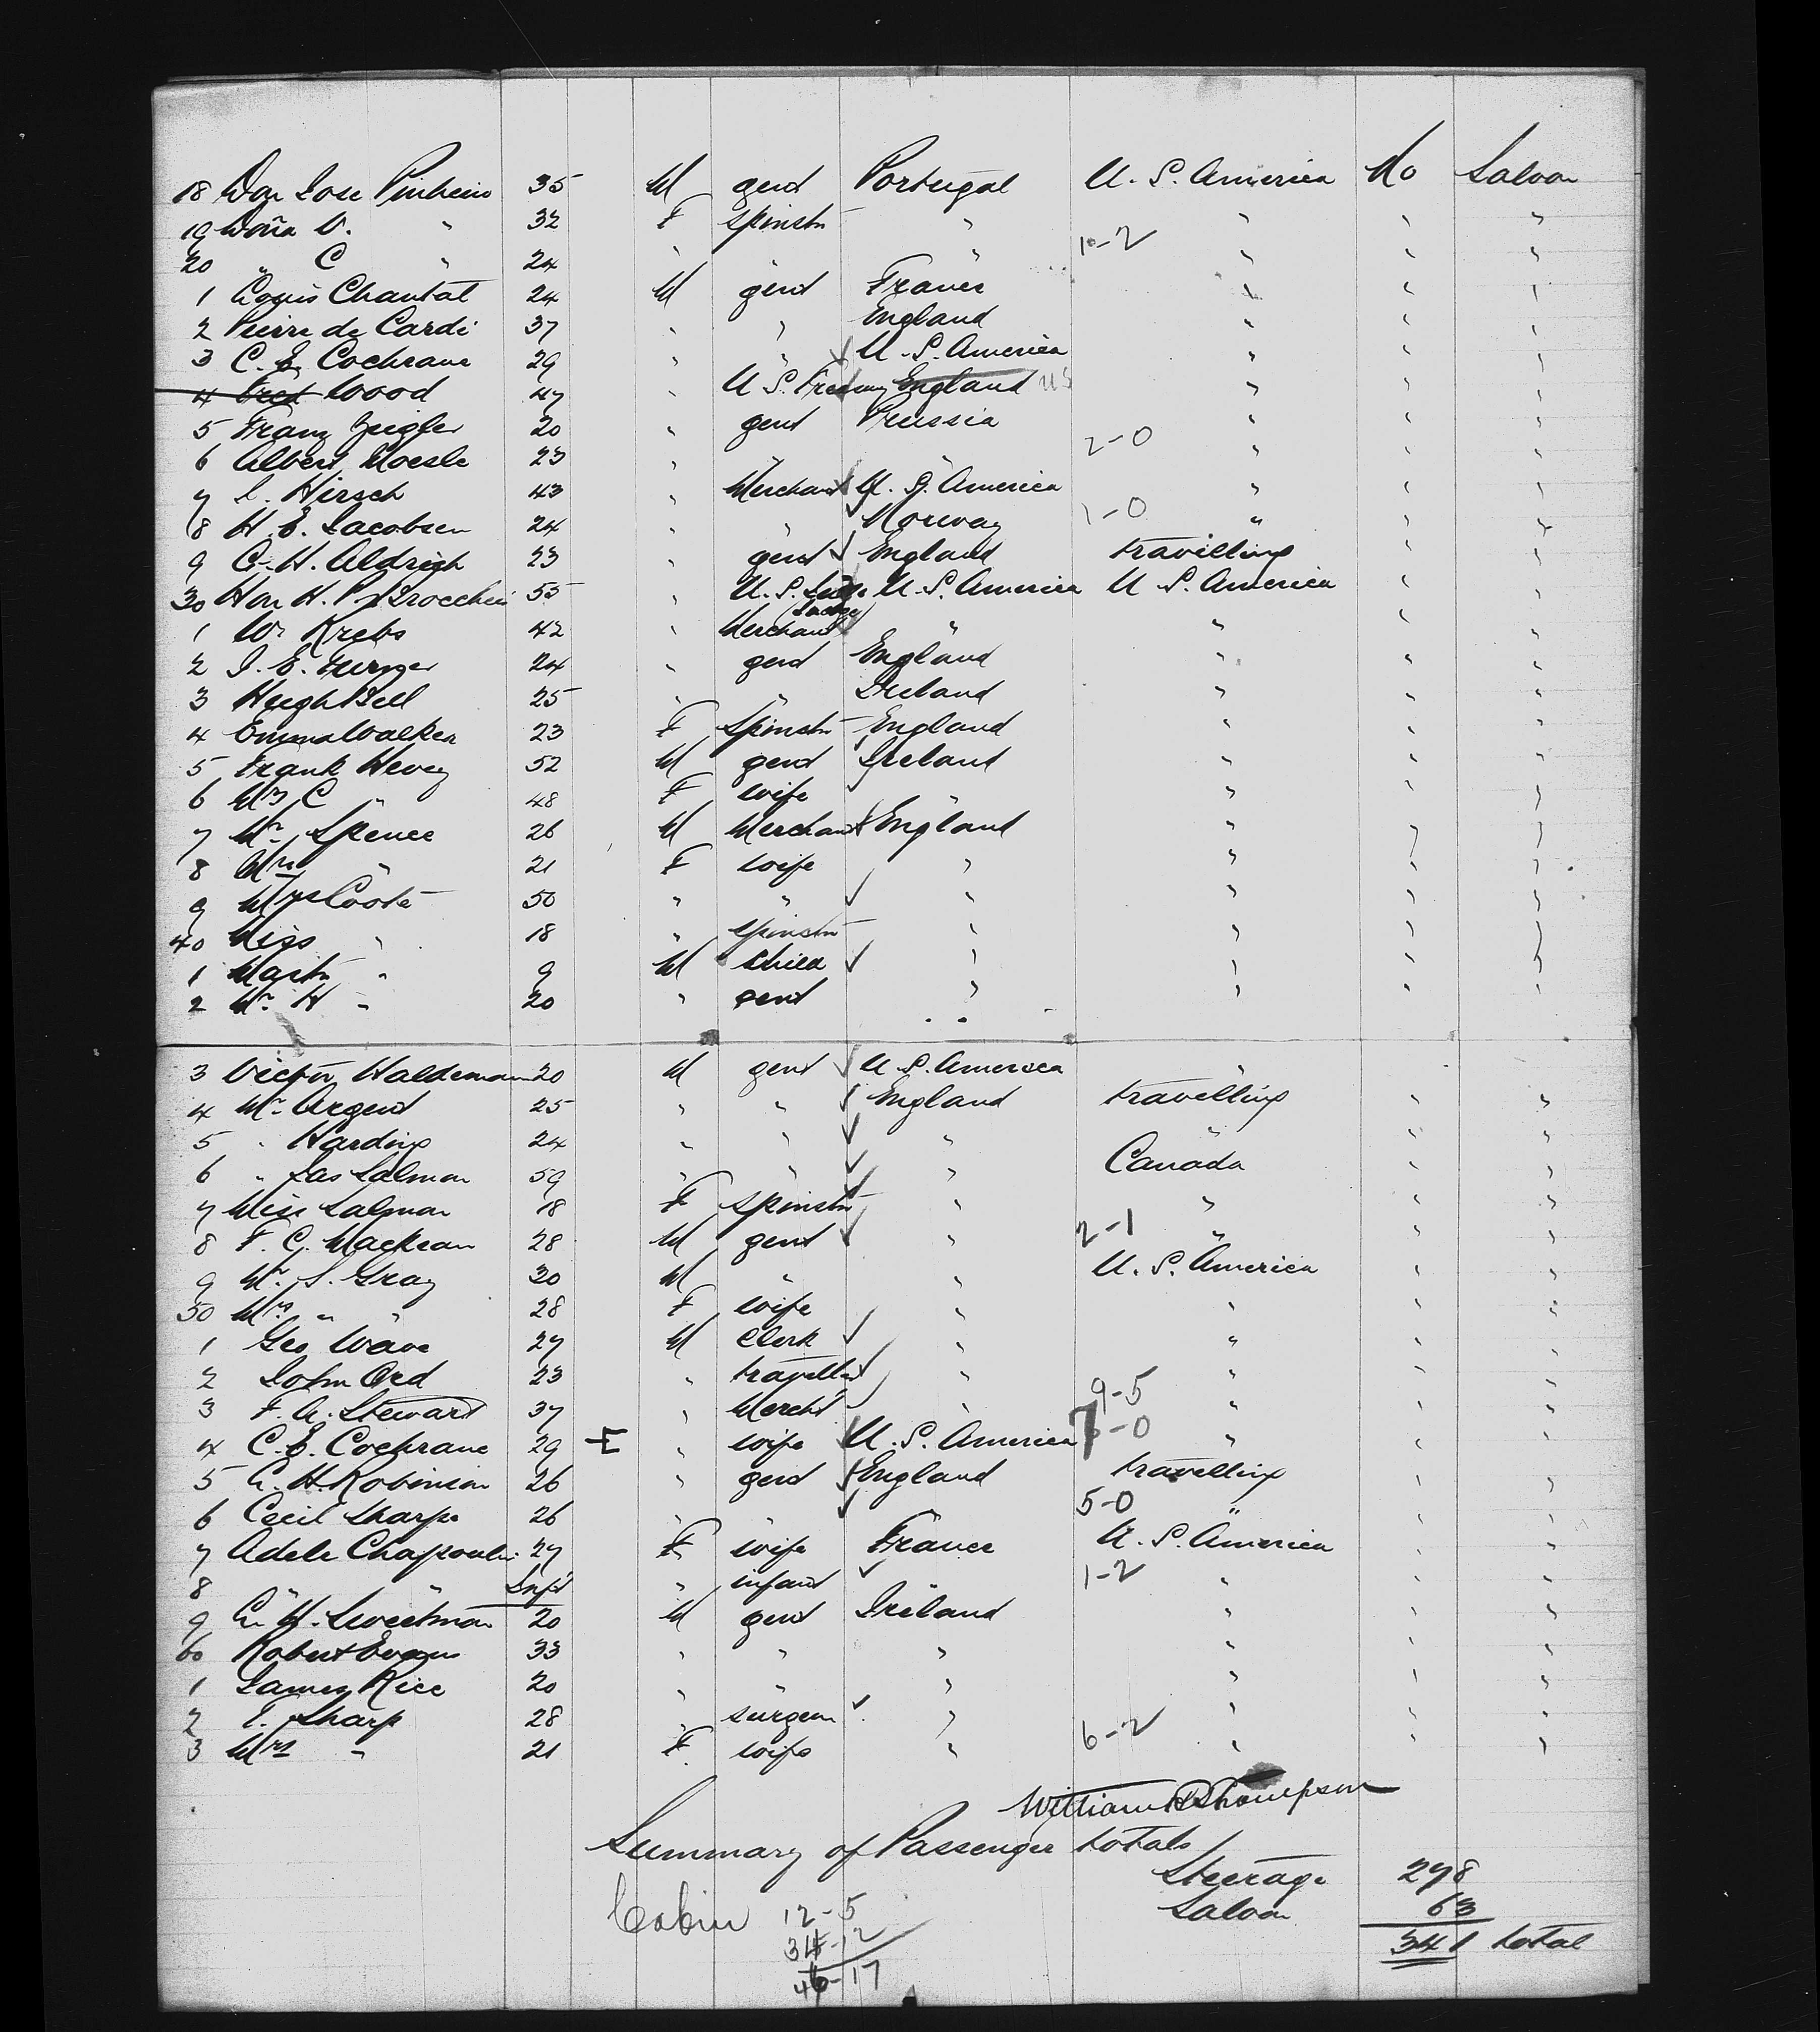 18 Don Jose Pinheiro 35 M gent Portugal U. S. America No Saloon
19 Doña V. " 32 F spinstr " " " "
20 " C " 24 " " " 10-2 " " "
1 Louis Chantat 24 M gent France " " "
2 Pierre de Cardi 37 " " England " " "
3 C. E. Cochrane 29 " " U. S. America " " "
4 Fred Wood 47 " U. S. Treasury England US " " "
5 Franz Zeigler 20 " gent Prussia " " "
6 Albert Moesle 23 " " " 2-0 " " "
7 L. Hirsch 43 " Merchant U. S. America " " "
8 H. E. Jacobsen 24 " " Norway 1-0 " " "
9 G. H. Aldrich 23 " gent England travelling " "
30 Hon H. P. 55 " U. S. Judge U. S. America U S. America " "
Judge
1 W. Krebs 42 " Merchant " " " "
2 J. E. 24 " gent England " " "
3 Hugh Bell 25 " " Ireland " " "
4 Emma Walker 23 F Spinstr England " " "
5 Frank Hevey 52 M gent Ireland " " "
6 Mrs C " 48 F wife " " " "
7 Mr. Spence 26 M Merchant England " " "
8 Mrs " 21 F wife " " " "
9 Mrs Coote 50 " " " " " "
40 Miss " 18 " spinstr " " " "
1 Mastr " 9 M Child " " " "
2 Mr. H " 20 " gent " " " "
3 Victor Haldeman 20 M gent U S. America " " "
4 Mr. Argent 25 " " England travelling " "
5 " Harding 24 " " " " " "
6 " Jas Salmon 59 " " " Canada " "
7 Miss Salmon 18 F spinstr " " " "
8 F. C. Mackean 28 M gent " 2-1 " " "
9 Mr. S. Gray 30 M " " U. S. America " "
50 Mrs. " " 28 F wife " " " "
1 Geo Wave 27 M Clerk " " " "
2 John Ord 23 " traveller " " " "
3 F. A. Stewart 37 " Mercht " 9-5 " " "
4 C. E. Cochrane 29 F " wife U. S. America 7-0 " " "
5 A. H. Robinson 26 " gent England travelling " "
6 Cecil Sharpe 26 " " " 5-0 " " "
7 Adele 27 F wife France U. S. America " "
8 " " Inft " infant " 1-2 " " "
9 A. H. Sweetman 20 M gent Ireland " " "
60 Robert Evans 33 " " " " " "
1 James Rice 20 " " " " " "
2 T. Sharp 28 " surgeon " " " "
3 Mrs " 21 F wife " 6-2 " " "
William Thompson
Summary of Passenger totals
Steerage 278
Cabin 12-5 Saloon 63
34-12 341 total
46-17